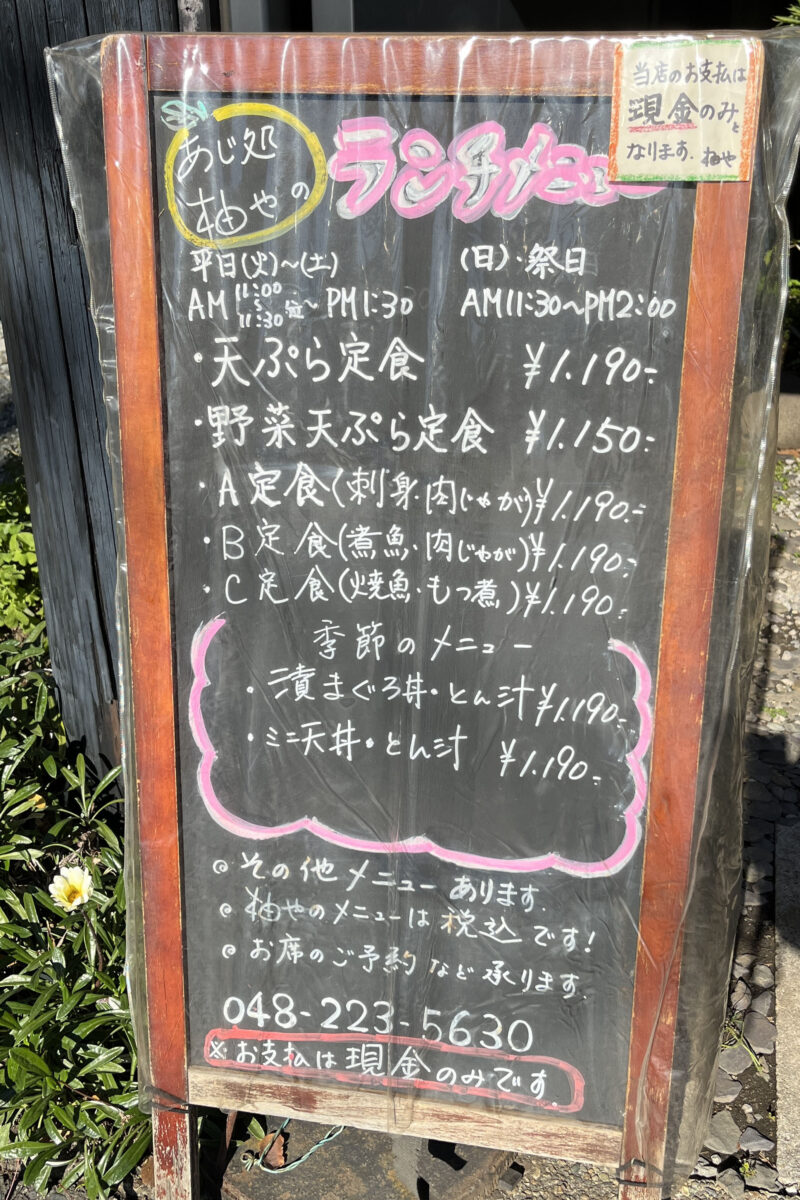 当店のお支払は
現金のみと
なります。柚や
あじ処
柚やの
ランチメニュー
平日(火)~(土)
AM 11:00
~
11:30
位~ PM1:30
(日)・祭日
AM11:30~PM2:00
・天ぷら定食 ¥1.190-
・野菜天ぷら定食 ¥1.150-
・A定食(刺身・肉じゃが)¥1.190-
・B定食(煮魚・肉じゃが)¥1.190-
・C定食(焼魚・もつ煮)¥1.190-
季節のメニュー
・漬まぐろ丼・とん汁 ¥1.190-
・ミニ天丼・とん汁 ¥1.190-
◎その他メニューあります。
◎柚やのメニューは税込です!
◎お席のご予約など承ります。
048-223-5630
※お支払は現金のみです。